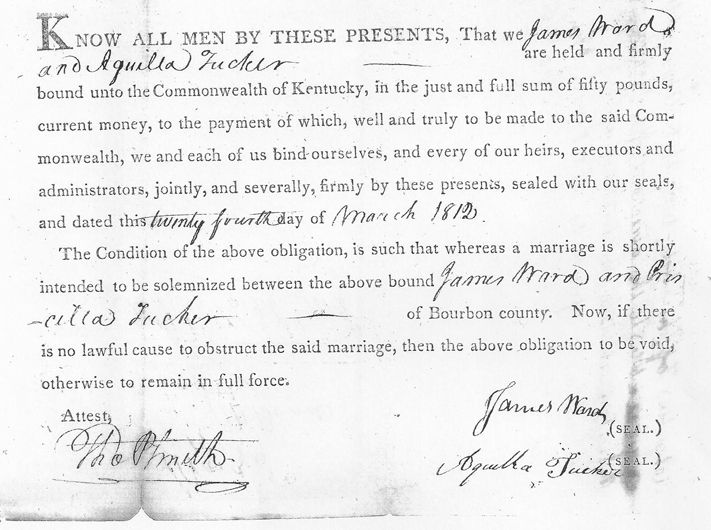 KNOW ALL MEN BY THESE PRESENTS, That we James Ward
and Aquilla Tucker are held and firmly
bound unto the Commonwealth of Kentucky, in the just and full sum of fifty pounds,
current money, to the payment of which, well and truly to be made to the said Com-
monwealth, we and each of us bind ourselves, and every of our heirs, executors and
administrators, jointly, and severally, firmly by these presents, sealed with our seals,
and dated this twenty fourth day of March 1812.
The Condition of the above obligation, is such that whereas a marriage is shortly
intended to be solemnized between the above bound James Ward and Pris
-cilla Tucker of Bourbon county. Now, if there
is no lawful cause to obstruct the said marriage, then the above obligation to be void,
otherwise to remain in full force.
Attest,
James Ward (SEAL.)
Tho P Smith
Aquilla Tucker (SEAL.)